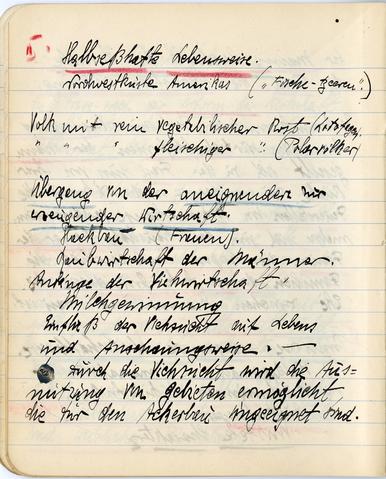 5.
Halbseßhafte Lebensweise.
Nordwestküste Amerikas ("Fische-
Volk mit rein vegetabilischer Kost
" " " fleischiger " (Polarvölker)
Übergang von der aneignenden zur
erzeugender Wirtschaft.
Hackbau (Frauen).
Raubwirtschaft der Männer.
Anfänge der Viehwirtschaft
Milchgewinnung
Einfluß der Viehzucht auf Lebens
und Anschauungsweise. —
Durch die Viehzucht wird die Aus=
nutzung von Gebieten ermöglicht,
die für den Ackerbau ungeeignet sind.